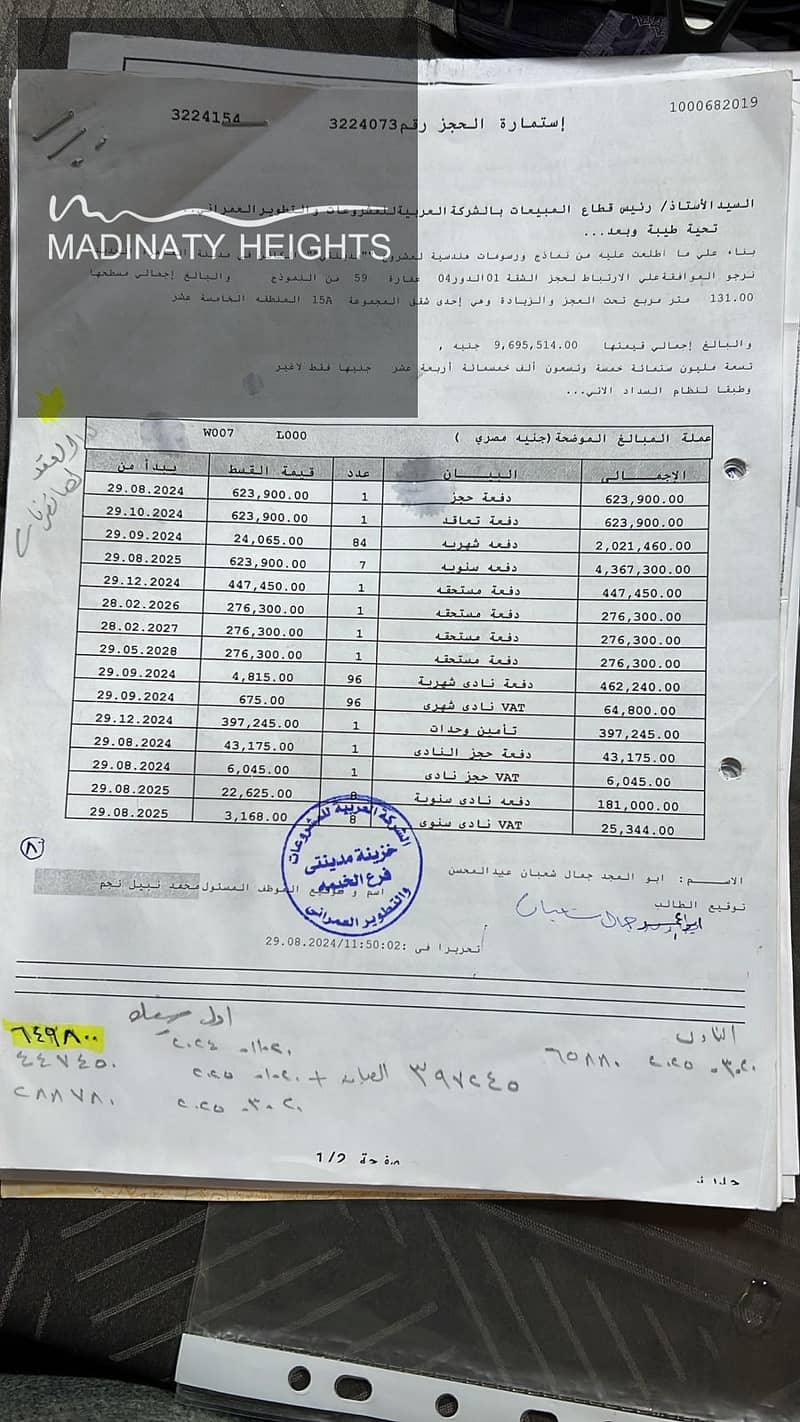 1000682019
إستمارة الحجز رقم 3224073
3224154
السيد الأستاذ/ رئيس قطاع المبيعات بالشركة العربية للمشروعات والتطوير العمراني..
تحية طيبة وبعد...
MADINATY HEIGHTS
بناء علي ما اطلعت عليه من نماذج ورسومات هندسية لمشروع
نرجو الموافقة علي الارتباط لحجز الشقة 01 الدور 04 عمارة 59 من النموذج والبالغ إجمالي مسطحها
131.00 متر مربع تحت العجز والزيادة وهي إحدى شقق المجموعة 15A المنطقه الخامسة عشر
والبالغ إجمالي قيمتها 9,695,514.00 جنيه ,
تسعة مليون ستمائة خمسة وتسعون ألف خمسمائة أربعة عشر جنيها فقط لاغير
وطبقا لنظام السداد الاتي...
عملة المبالغ الموضحة (جنيه مصري ) L000 W007
الإجمالى البيــان عدد قيمة القسط يبدأ من
623,900.00 دفعة حجز 1 623,900.00 29.08.2024
623,900.00 دفعة تعاقد 1 623,900.00 29.10.2024
2,021,460.00 دفعه شهريه 84 24,065.00 29.09.2024
4,367,300.00 دفعه سنويه 7 623,900.00 29.08.2025
447,450.00 دفعة مستحقه 1 447,450.00 29.12.2024
276,300.00 دفعة مستحقه 1 276,300.00 28.02.2026
276,300.00 دفعة مستحقه 1 276,300.00 28.02.2027
276,300.00 دفعة مستحقه 1 276,300.00 29.05.2028
462,240.00 دفعة نادى شهرية 96 4,815.00 29.09.2024
64,800.00 VAT نادى شهرى 96 675.00 29.09.2024
397,245.00 تأمين وحدات 1 397,245.00 29.12.2024
43,175.00 دفعة حجز النادى 1 43,175.00 29.08.2024
6,045.00 VAT حجز نادى 1 6,045.00 29.08.2024
181,000.00 دفعه نادى سنوية 8 22,625.00 29.08.2025
25,344.00 VAT نادى سنوى 8 3,168.00 29.08.2025
الشركة العربية للمشروعات
خزينة مدينتى
فرع الخيمه
والتطوير العمراني
٨
الاســـم: ابو المجد جمال شعبان عبدالمحسن
اسم و توقيع الموظف المسئول محمد نبيل نجم
توقيع الطالب
تحريرا فى :29.08.2024/11:50:02
النادى
٦٤٩٨٠٠
٤٤٧٤٥٠
٣٩٧٢٤٥
٦٥٨٨٠
٢٨٨٧٨٠
صفحة 1/2